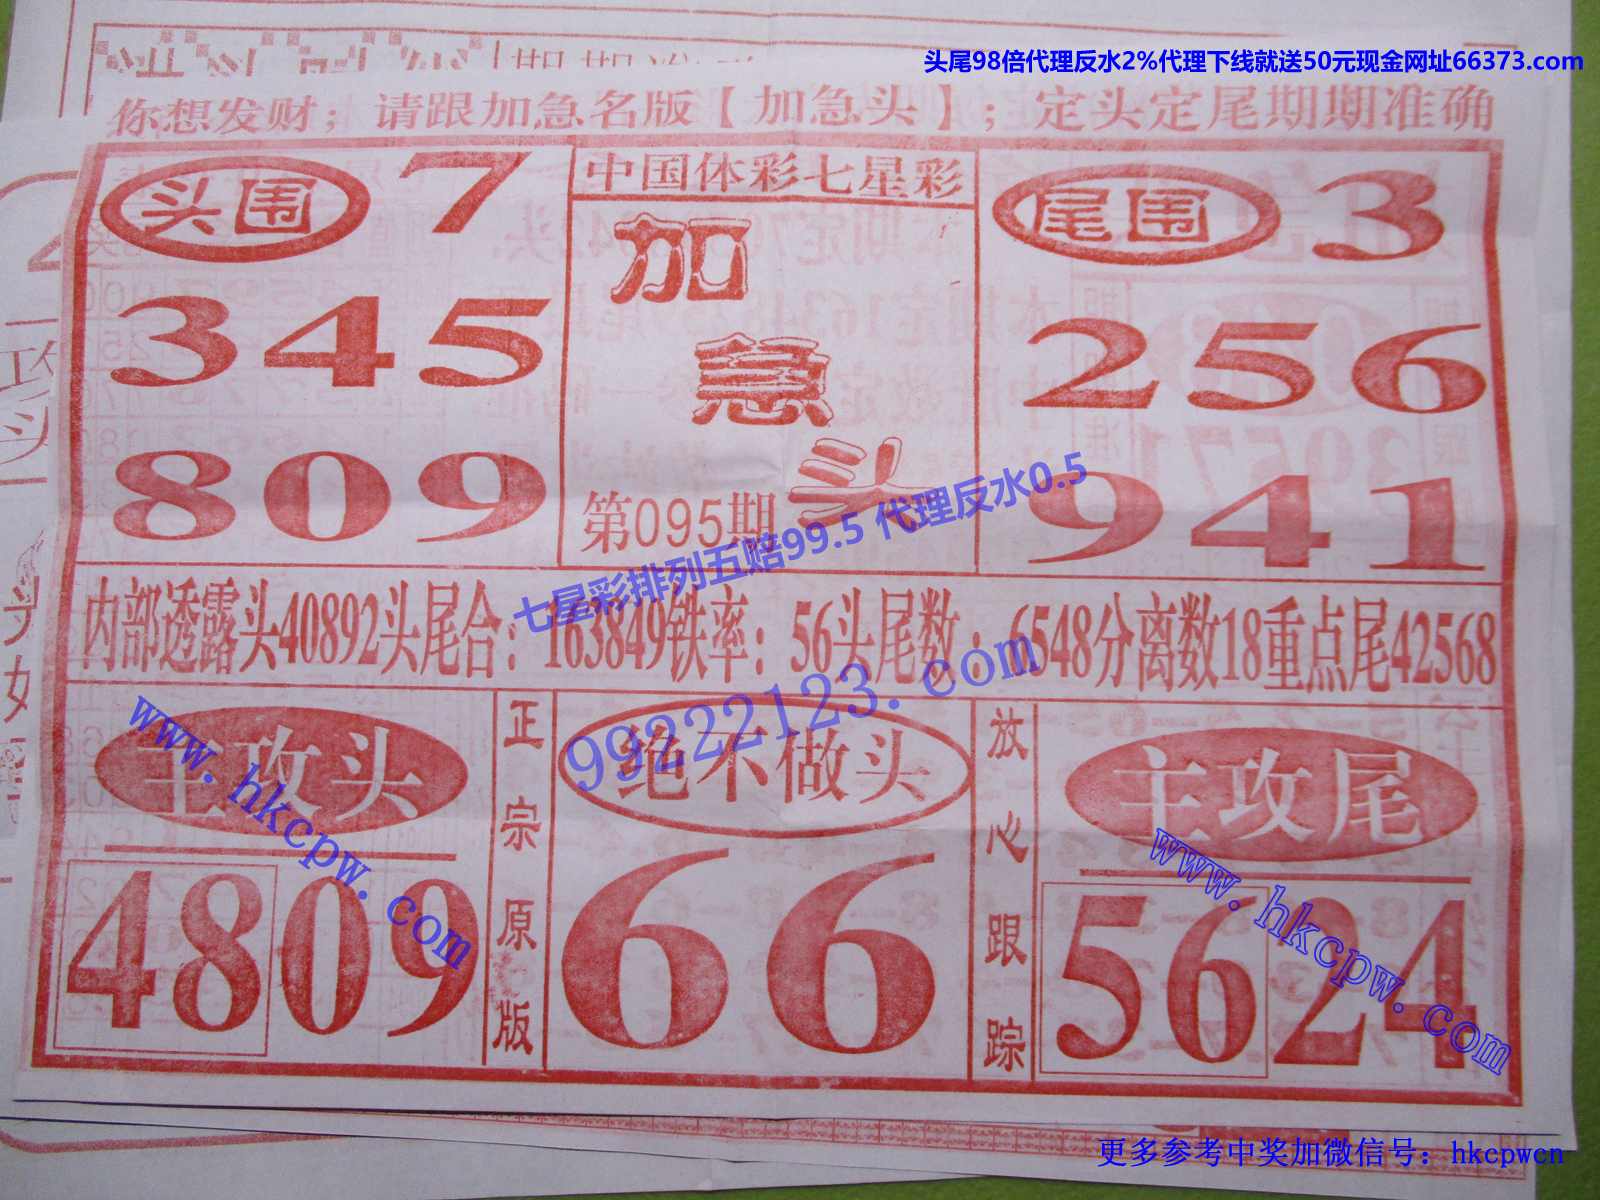 头尾98倍代理反水2%代理下线就送50元现金网址66373.com
你想发财；请跟加急名版【加急头】；定头定尾期期准确
头围 7
345
809
中国体彩七星彩
加
急
头
第095期
尾围 3
256
941
七星彩排列五赔99.5 代理反水0.5
内部透露头40892头尾合：163849铁率：56头尾数：6548分离数18重点尾42568
99222123.com
主攻头
4809
www.hkcpw.com
正宗原版
绝不做头
66
放心跟踪
主攻尾
5624
www.hkcpw.com
更多参考中奖加微信号：hkcpwcn